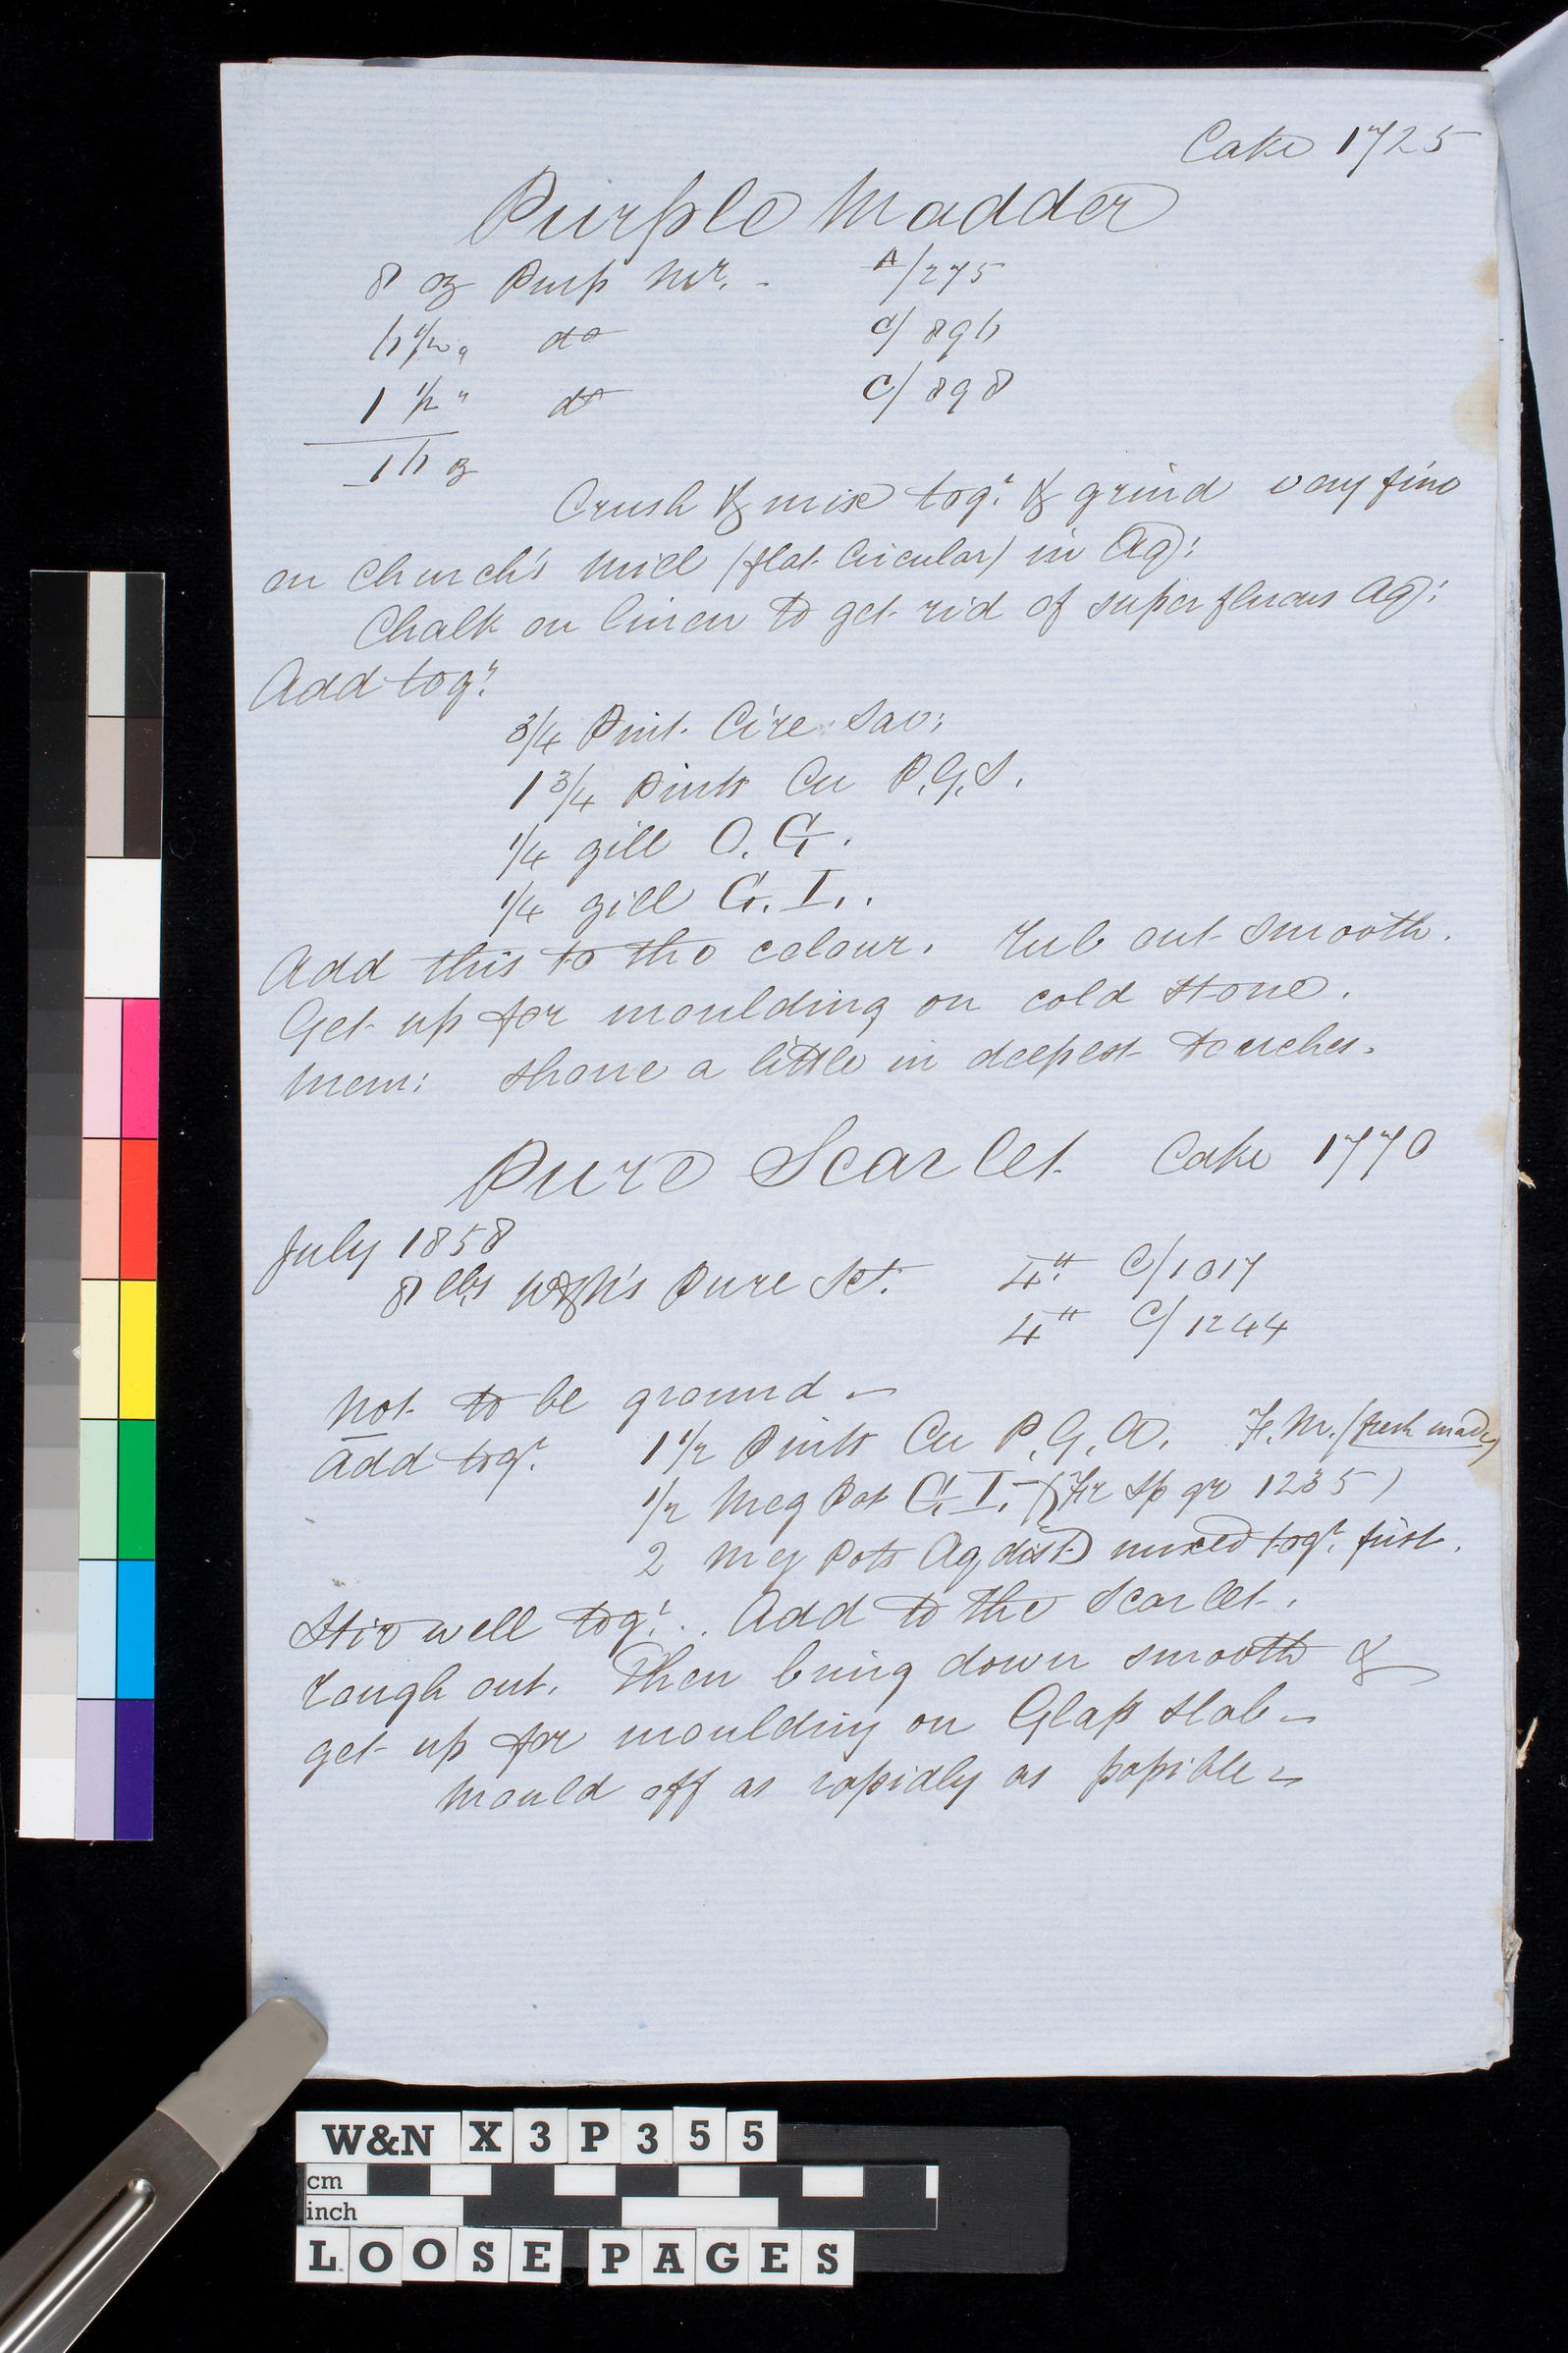 Cake 1725
Purple Madder
8 oz Purp Mr. - A/275
6 1/2 " do C/896
1 1/2 " do C/898
16 oz
Crush & mix togr. & grind very fine
on Church's Mill (flat Circular) in Aq:
Chalk on linen to get rid of superfluous Aq:
Add togr.
3/4 Pint Cire Sav:
1 3/4 Pints Cu P.G.S.
1/4 gill O.G.
1/4 gill G.I..
Add this to the colour. rub out smooth.
Get up for moulding on cold stone.
Mem: shone a little in deepest touches.
Pure Scarlet Cake 1770
July 1858
8 lbs W&N's Pure Sct. 4" C/1017
4" C/1244
Not to be ground -
Add togr. 1 1/2 Pints Cu P.G.A. F.M. (fresh made)
1/2 Meg Pot G.I. (Fr Sp gr 1235)
2 Meg Pots Aq, dist mixed togr. first.
Stir well togr.. Add to the Scarlet.
rough out. Then bring down smooth &
get up for moulding on Glass slab -
Mould off as rapidly as possible -
W&N X3P355
cm
inch
LOOSE PAGES